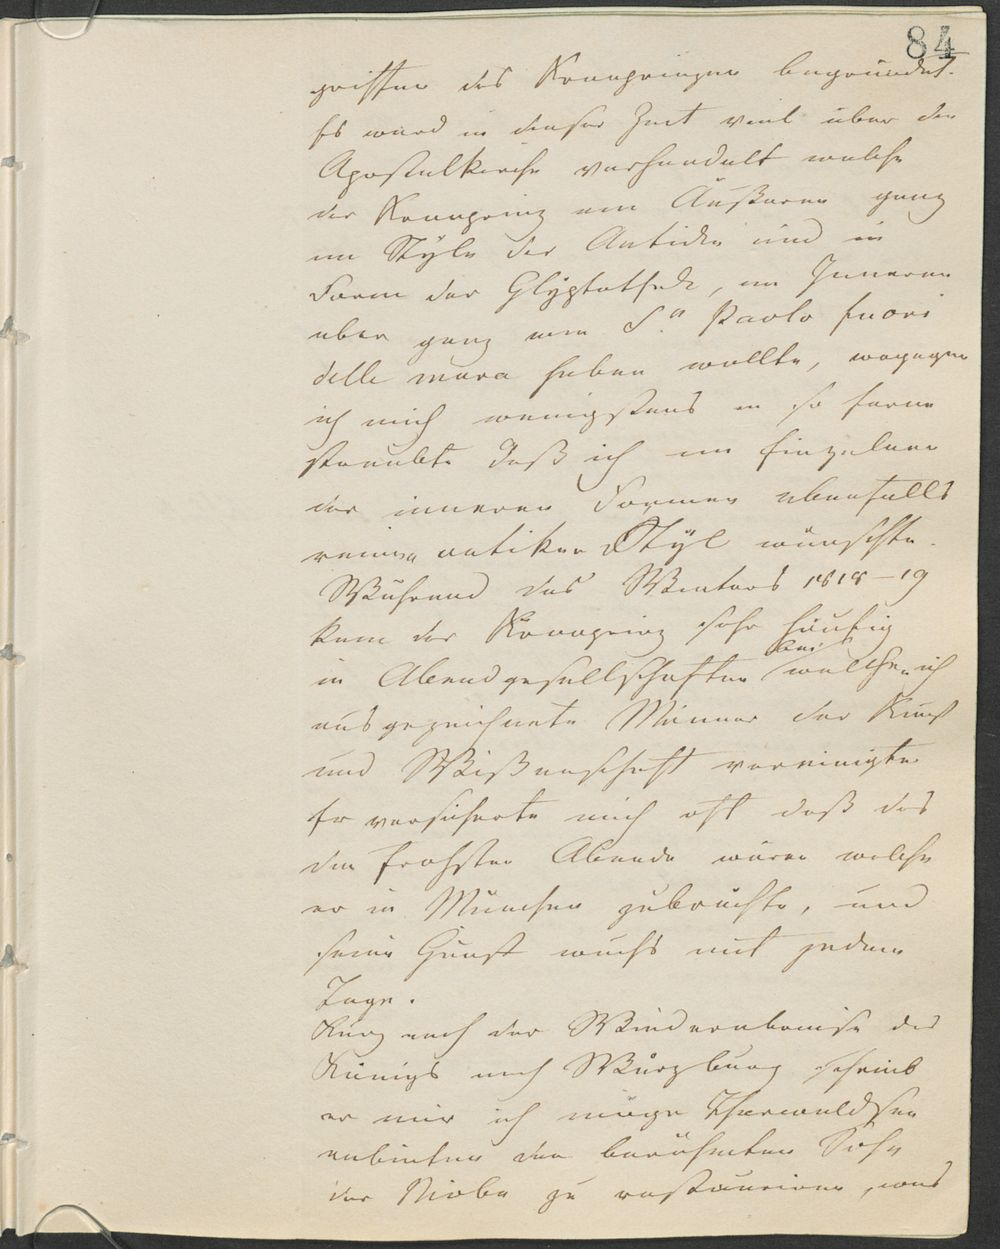 84
griffen des Kronprinzen begründet.
Es ward in dieser Zeit viel über die
Apostelkirche verhandelt welche
der Kronprinz am Äußeren ganz
im Style der Antike und in
Form der Glÿptothek, im Inneren
aber ganz wie S.n Paolo fuori
delle mura haben wollte, wogegen
ich mich wenigstens in so ferne
sträubte daß ich im Einzelnen
der inneren Formen ebenfalls
reinen antiken Stÿl wünschte.
Während des Winters 1818–19
kam der Kronprinz sehr häufig
in Abendgesellschaften bei welchen ich
ausgezeichnete Männer der Kunst
und Wißenschaft vereinigte
Er versicherte mich oft daß das
die frohsten Abende wären welche
er in München zubrächte, und
seine Gunst wuchs mit jedem
Tage.
Kurz nach der Wiederabreise des
Königs nach Würzburg schrieb
er mir ich möge Thorwaldsen
anbieten den berühmten Sohn
der Niobe zu restauriren, was